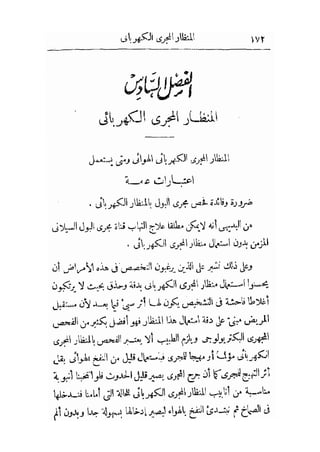 ١٧٢
المنظار المجرى الكهربائى
الفصل السادس
المنظار المجرى الكهربائى
المنظار المجرى الكهربائى الهوائى ومتى يستعمل
اعتبارات عامة
ضرورة وفائدة فحص مجرى البول بالمنظار الكهربائى .
من البديهى أنه لا يمكن مطلقا علاج التهاب قناة مجرى البول السيلانى
المزمن بدون استعمال منظار المجرى الكهربائى .
وعلى ذلك نشير على الذين يرغبون التخصص فى هذه الأمراض أن
يحسنوا استعمال منظار المجرى الكهربائى بدقة وحذق بحيث لا يرتكبون
أغلاطا فاحشة فى التشخيص يكون لها أثر سيئ فيما بعد لأن مستقبل
المريض مبنى على دقة استعمال هذا المنظار فهو أفضل بكثير من الفحص
المجهرى البكتريولوجى ويلزم الطبيب ألا يعتبر الفحص بالمنظار المجرى
الكهربائى مؤلما أو مهيجا للمجرى فباستعمال قليل من النفخ الهوائى يقل
أثر التهيج للمجرى كما أن جرح المجرى يصير قليل الحدوث فلو انتخبنا أنبوبة
مناسبة من أنابيب المنظار المجرى الكهربائى للحالة التى أمامنا فندخلها
فى الصماخ ثم نبتدئ النفخ بالهواء ليصير إدخالها بسهولة جدا وبدون ألم